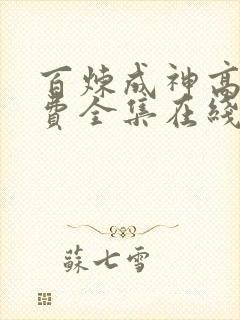 百炼成神高
費全集在綫
蘇七雪